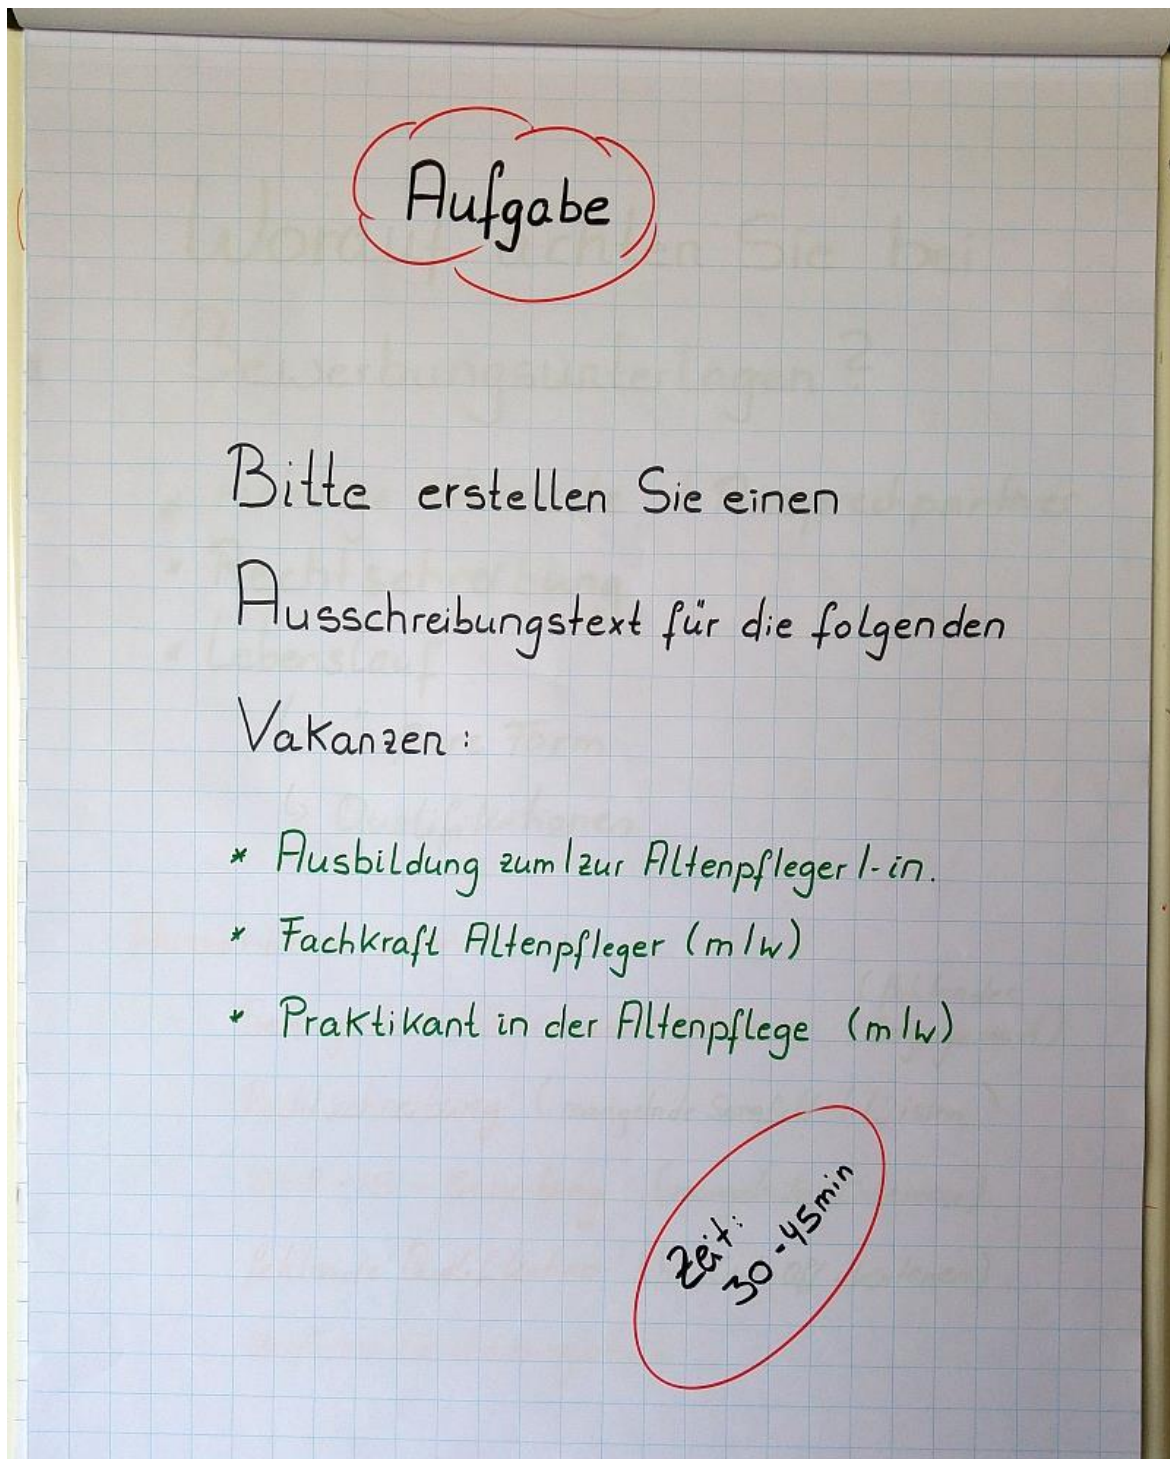 Aufgabe
Bitte erstellen Sie einen
Ausschreibungstext für die folgenden
Vakanzen:
* Ausbildung zum/zur Altenpfleger/-in.
* Fachkraft Altenpfleger (m/w)
* Praktikant in der Altenpflege (m/w)
Zeit:
30-45min